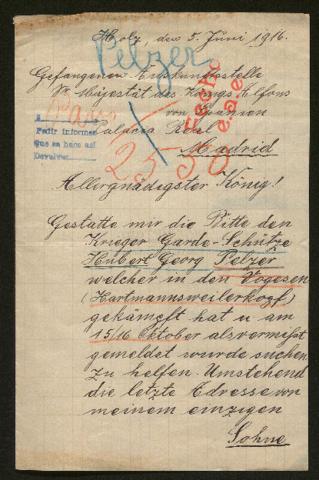 Holz, den 5. Juni 1916.
Pelzer
Gefangenen Auskunftsstelle
Sr Majestät des Königs Alfons
von Spanien
Pedir informes
Que se hace así
Real
Madrid
2530
Allergnädigster König!
Gestatte mir die Bitte den
Krieger Garde-Schütze
Hubert Georg Pelzer
welcher in den Vogesen
(Hartmannsweilerkopf)
gekämpft hat u am
15/16 Oktober als vermißt
gemeldet wurde suchen
zu helfen. Umstehend
die letzte Adresse von
meinem einzigen
Sohne